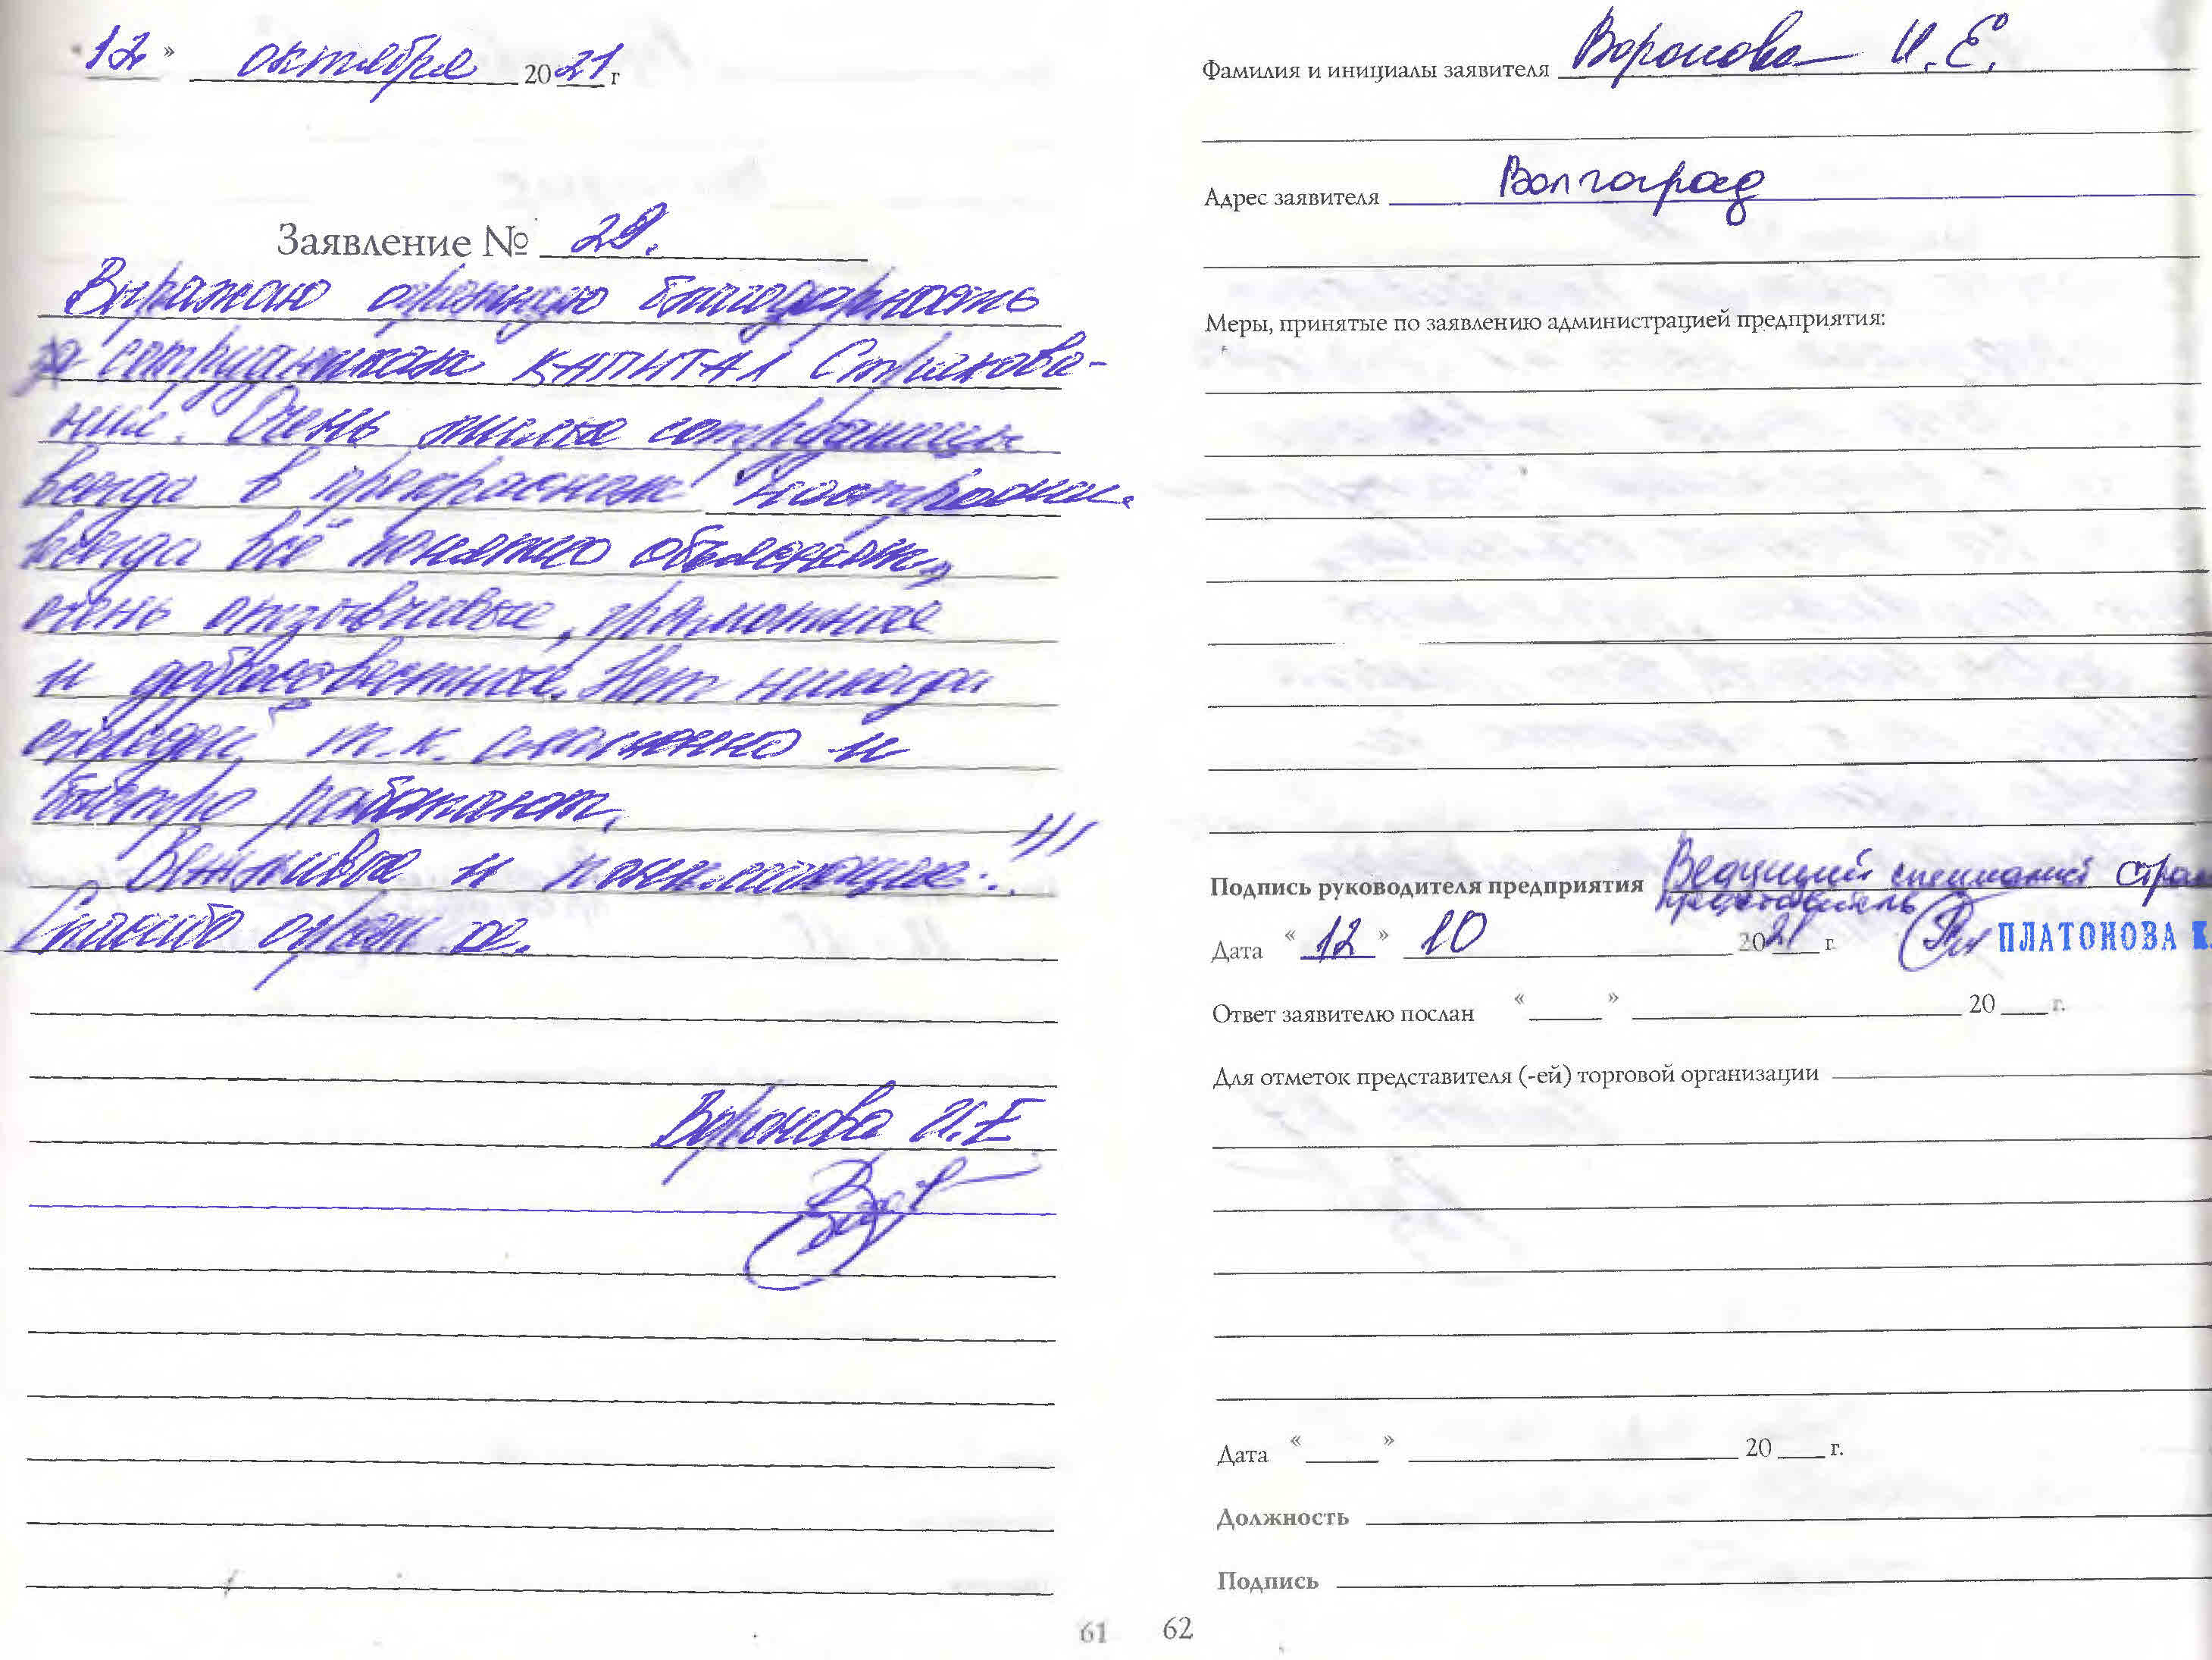 12 » октября 2021 г
Заявление № 29.
Выражаю огромную благодарность
сотрудникам КАПИТАЛ Страхова-
ния. Очень милые сотрудницы
всегда в прекрасном настроении
всегда всё понятно объясняют,
очень отзывчивые, грамотные
и добросовестные. Нет никогда
очередей, т.к. слаженно и
быстро работают.
Вежливые и понимающие...!!!
Спасибо огромное.
Воронова И.Е
61
Фамилия и инициалы заявителя Воронова И.Е.
Адрес заявителя Волгоград
Меры, принятые по заявлению администрацией предприятия:
Подпись руководителя предприятия Ведущий специалист Страх
представитель
Дата « 12 » 10 2021 г. ПЛАТОНОВА К.
Ответ заявителю послан « » 20 г.
Для отметок представителя (-ей) торговой организации
Дата « » 20 г.
Должность
Подпись
62